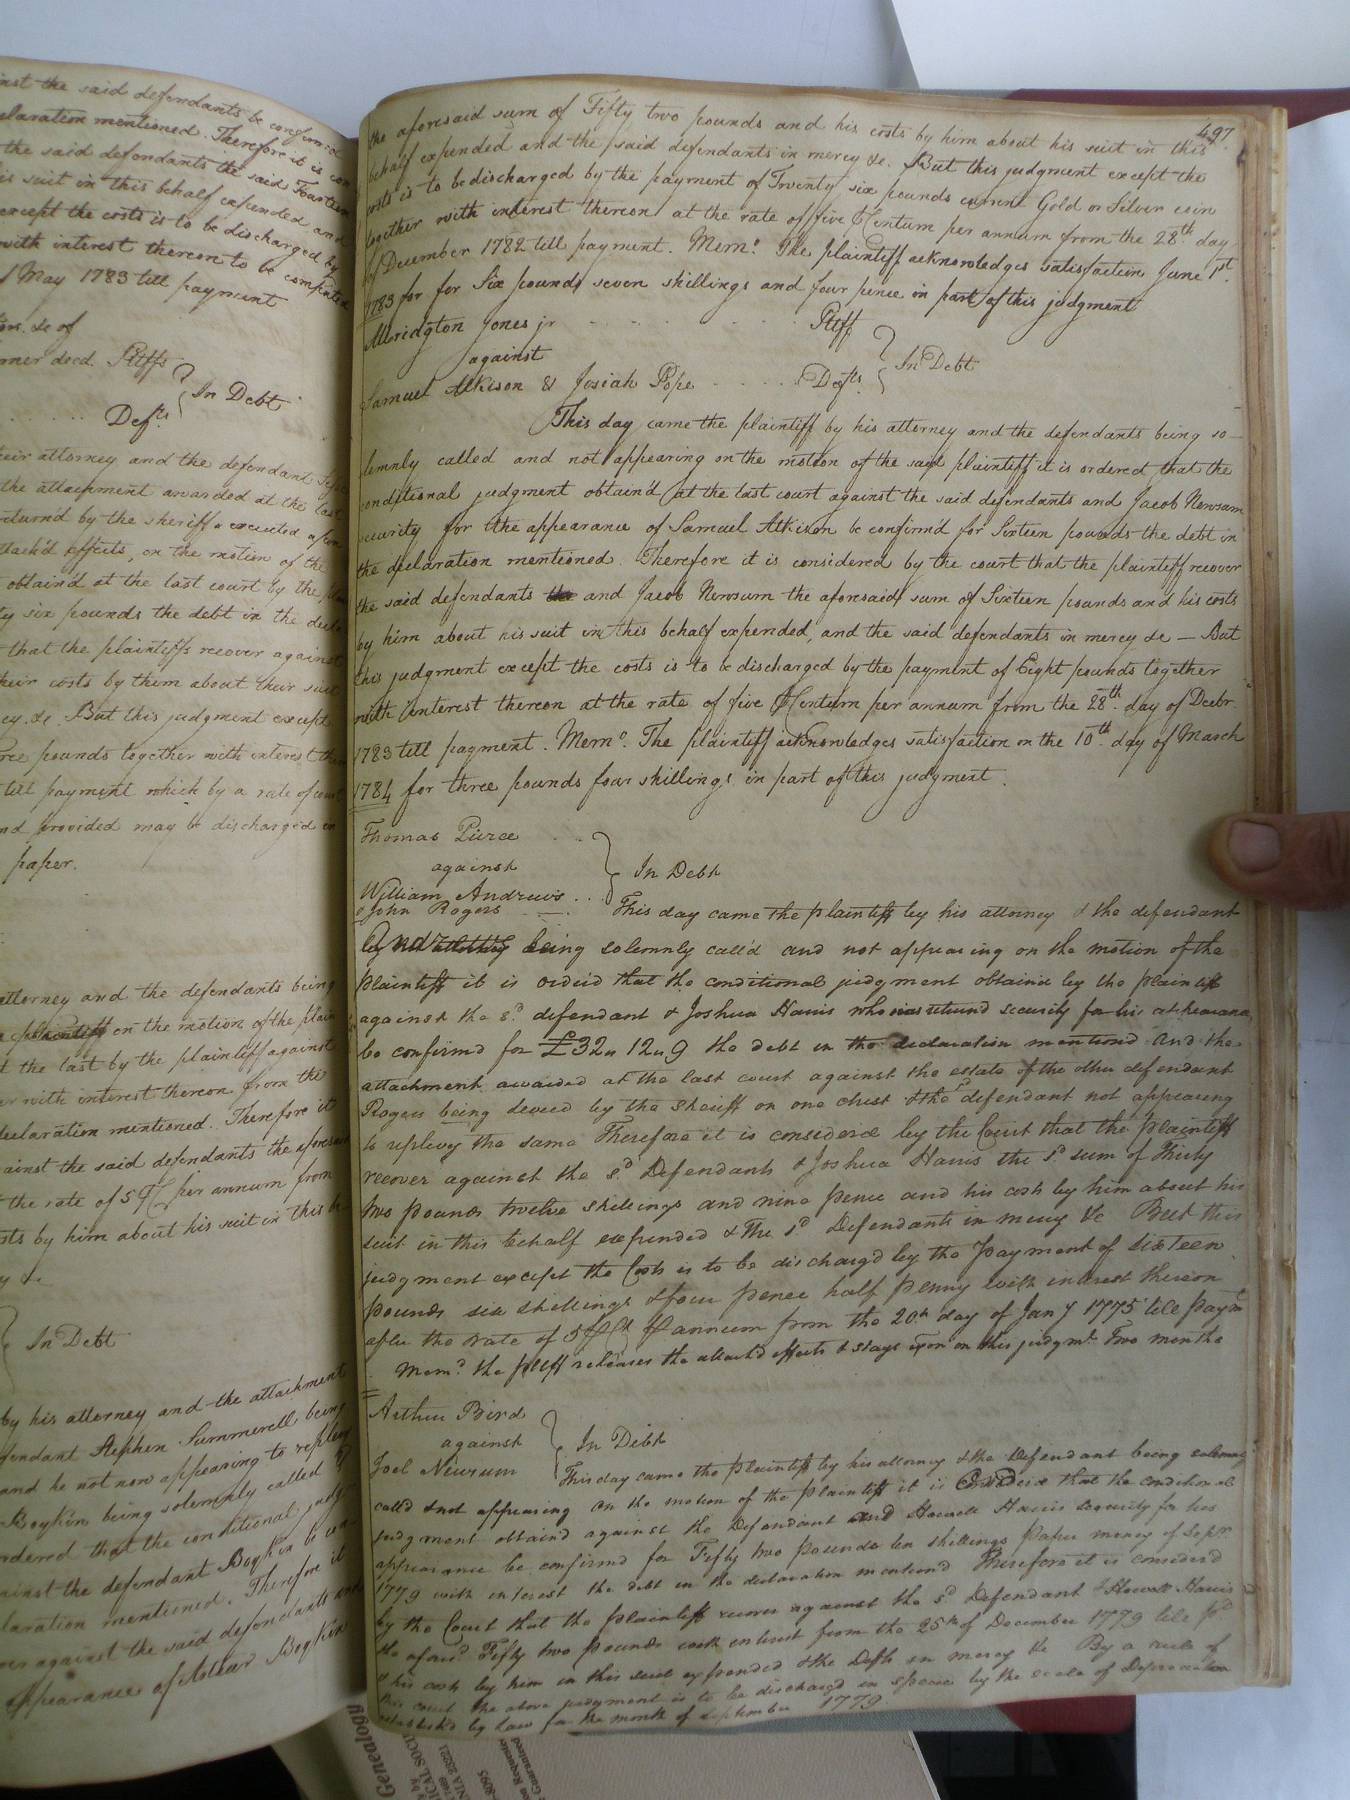 inst the said defendants be confirmed
claration mentioned. Therefore it is con
the said defendants the said Fourteen
is suit in this behalf expended and
except the costs is to be discharged by
with interest thereon to be computed
May 1783 till payment
&c of
decd. Pltffs
In Debt
Defts
eir attorney and the defendant
the attachment awarded at the last
return'd by the sheriff executed upon
ttach'd effects, on the motion of the
obtain'd at the last court by the
ty six pounds the debt in the decla
that the plaintiffs recover against
heir costs by them about their suit
cy &c. But this judgment except
ree pounds together with interest ther
till payment which by a rate of court
nd provided may be discharged in
paper.
attorney and the defendants being
plaintiff on the motion of the plain
t the last by the plaintiff against
with interest thereon from the
declaration mentioned. Therefore it
ainst the said defendants the aforesaid
the rate of 5 ⅌ Ct per annum from
sts by him about his suit in this be
y &c
In Debt
by his attorney and the attachment
fendant Stephen Summerell being
and he not now appearing to replevy
Boykin being solemnly called
rdered that the conditional judg
ainst the defendant Boykin be con
laration mentioned. Therefore it
ver against the said defendants and
appearance of Boykin
497
the aforesaid sum of Fifty two pounds and his costs by him about his suit in this
behalf expended and the said defendants in mercy &c. But this judgment except the
costs is to be discharged by the payment of Twenty six pounds current Gold or Silver coin
together with interest thereon at the rate of five ⅌ Centum per annum from the 28th day
of December 1782 till payment. Memo. The plaintiff acknowledges satisfaction June 1st
1783 for for Six pounds seven shillings and four pence in part of this judgment
Albridgton Jones jr Pltff
against In Debt
Samuel Atkison & Josiah Pope Defts
This day came the plaintiff by his attorney and the defendants being so-
lemnly called and not appearing on the motion of the said plaintiff it is ordered that the
conditional judgment obtain'd at the last court against the said defendants and Jacob Newsum
security for the appearance of Samuel Atkison be confirm'd for Sixteen pounds the debt in
the declaration mentioned. Therefore it is considered by the court that the plaintiff recover
the said defendants the and Jacob Newsum the aforesaid sum of Sixteen pounds and his costs
by him about his suit in this behalf expended, and the said defendants in mercy &c - But
this judgment except the costs is to be discharged by the payment of Eight pounds together
with interest thereon at the rate of five ⅌ Centum per annum from the 28th day of Decbr.
1783 till payment. Memo. The plaintiff acknowledges satisfaction on the 10th day of March
1784 for three pounds four shillings in part of this judgment.
Thomas Pierce
against In Debt
William Andrews
& John Rogers This day came the plaintiff by his attorney & the defendant
Andrews being solemnly call'd and not appearing on the motion of the
plaintiff it is order'd that the conditional judgment obtaind by the plaintiff
against the sd defendant & Joshua Harris who was returnd security for his appearance
be confirmd for £32,, 12,, 9 the debt in the declaration mentiond and the
attachment awarded at the last court against the estate of the other defendant
Rogers being levied by the Sheriff on one chest & the sd defendant not appearing
to replevy the same Therefore it is considerd by the Court that the plaintiff
recover against the sd Defendants & Joshua Harris the sd sum of Thirty
two pounds twelve shillings and nine pence and his costs by him about his
suit in this behalf expended & the sd Defendants in mercy &c But this
judgment except the Costs is to be dischargd by the Payment of sixteen
pounds six shillings & four pence half penny with interest thereon
after the rate of 5 ⅌ Ct ⅌ annum from the 20th day of Jany 1775 till paymt
Memo. the Pltff releases the attachd effects & stays exon on this judgmt Two months
Arthur Bird
against In Debt
Joel Newsum This day came the plaintiff by his attorney & the Defendant being solemnly
calld & not appearing on the motion of the plaintiff it is Considerd that the conditional
judgment obtaind against the Defendant and Howell Harris security for his
appearance be confirmd for Fifty two pounds ten shillings paper money of Sepr
1779 with interest the debt in the declaration mentiond Therefore it is considerd
by the Court that the plaintiff recover against the sd Defendant & Howell Harris
the aforesd Fifty two pounds with interest from the 25th of December 1779 till pd
& his costs by him in this suit expended & the Defts in mercy &c By a rule of
this court the above judgment is to be dischargd in specie by the scale of Depreciation
establish'd by law for the month of September 1779.
Genealogy
by
ICAL SOCI
NIA 23221
-8095
on Reques
Guaranteed